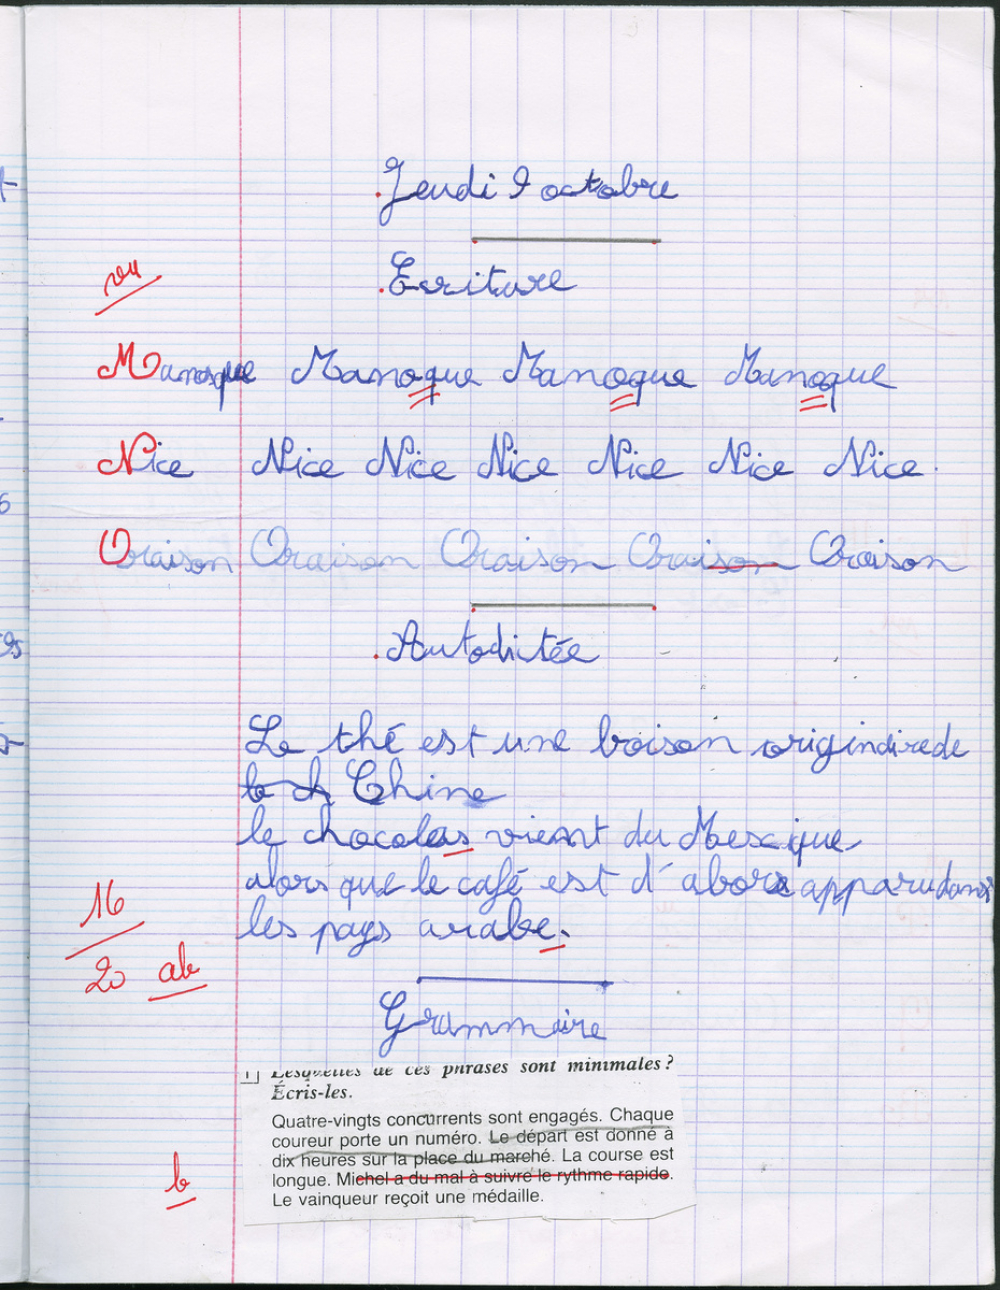 Jeudi 9 octobre
Ecriture
vu
Manosque Manoque Manoque Manoque
Nice Nice Nice Nice Nice Nice Nice.
Oraison Oraison Oraison Oraison Oraison
Autodictée
Le thé est une boison origindirede
Chine
le chocolas vient du Mexique
alors que le café est d'abord apparu dans
les pays arabe.
16
20 ab
Grammaire
1 Lesquelles de ces phrases sont minimales ?
Écris-les.
Quatre-vingts concurrents sont engagés. Chaque
coureur porte un numéro. Le départ est donné à
dix heures sur la place du marché. La course est
longue. Michel a du mal à suivre le rythme rapide.
Le vainqueur reçoit une médaille.
b